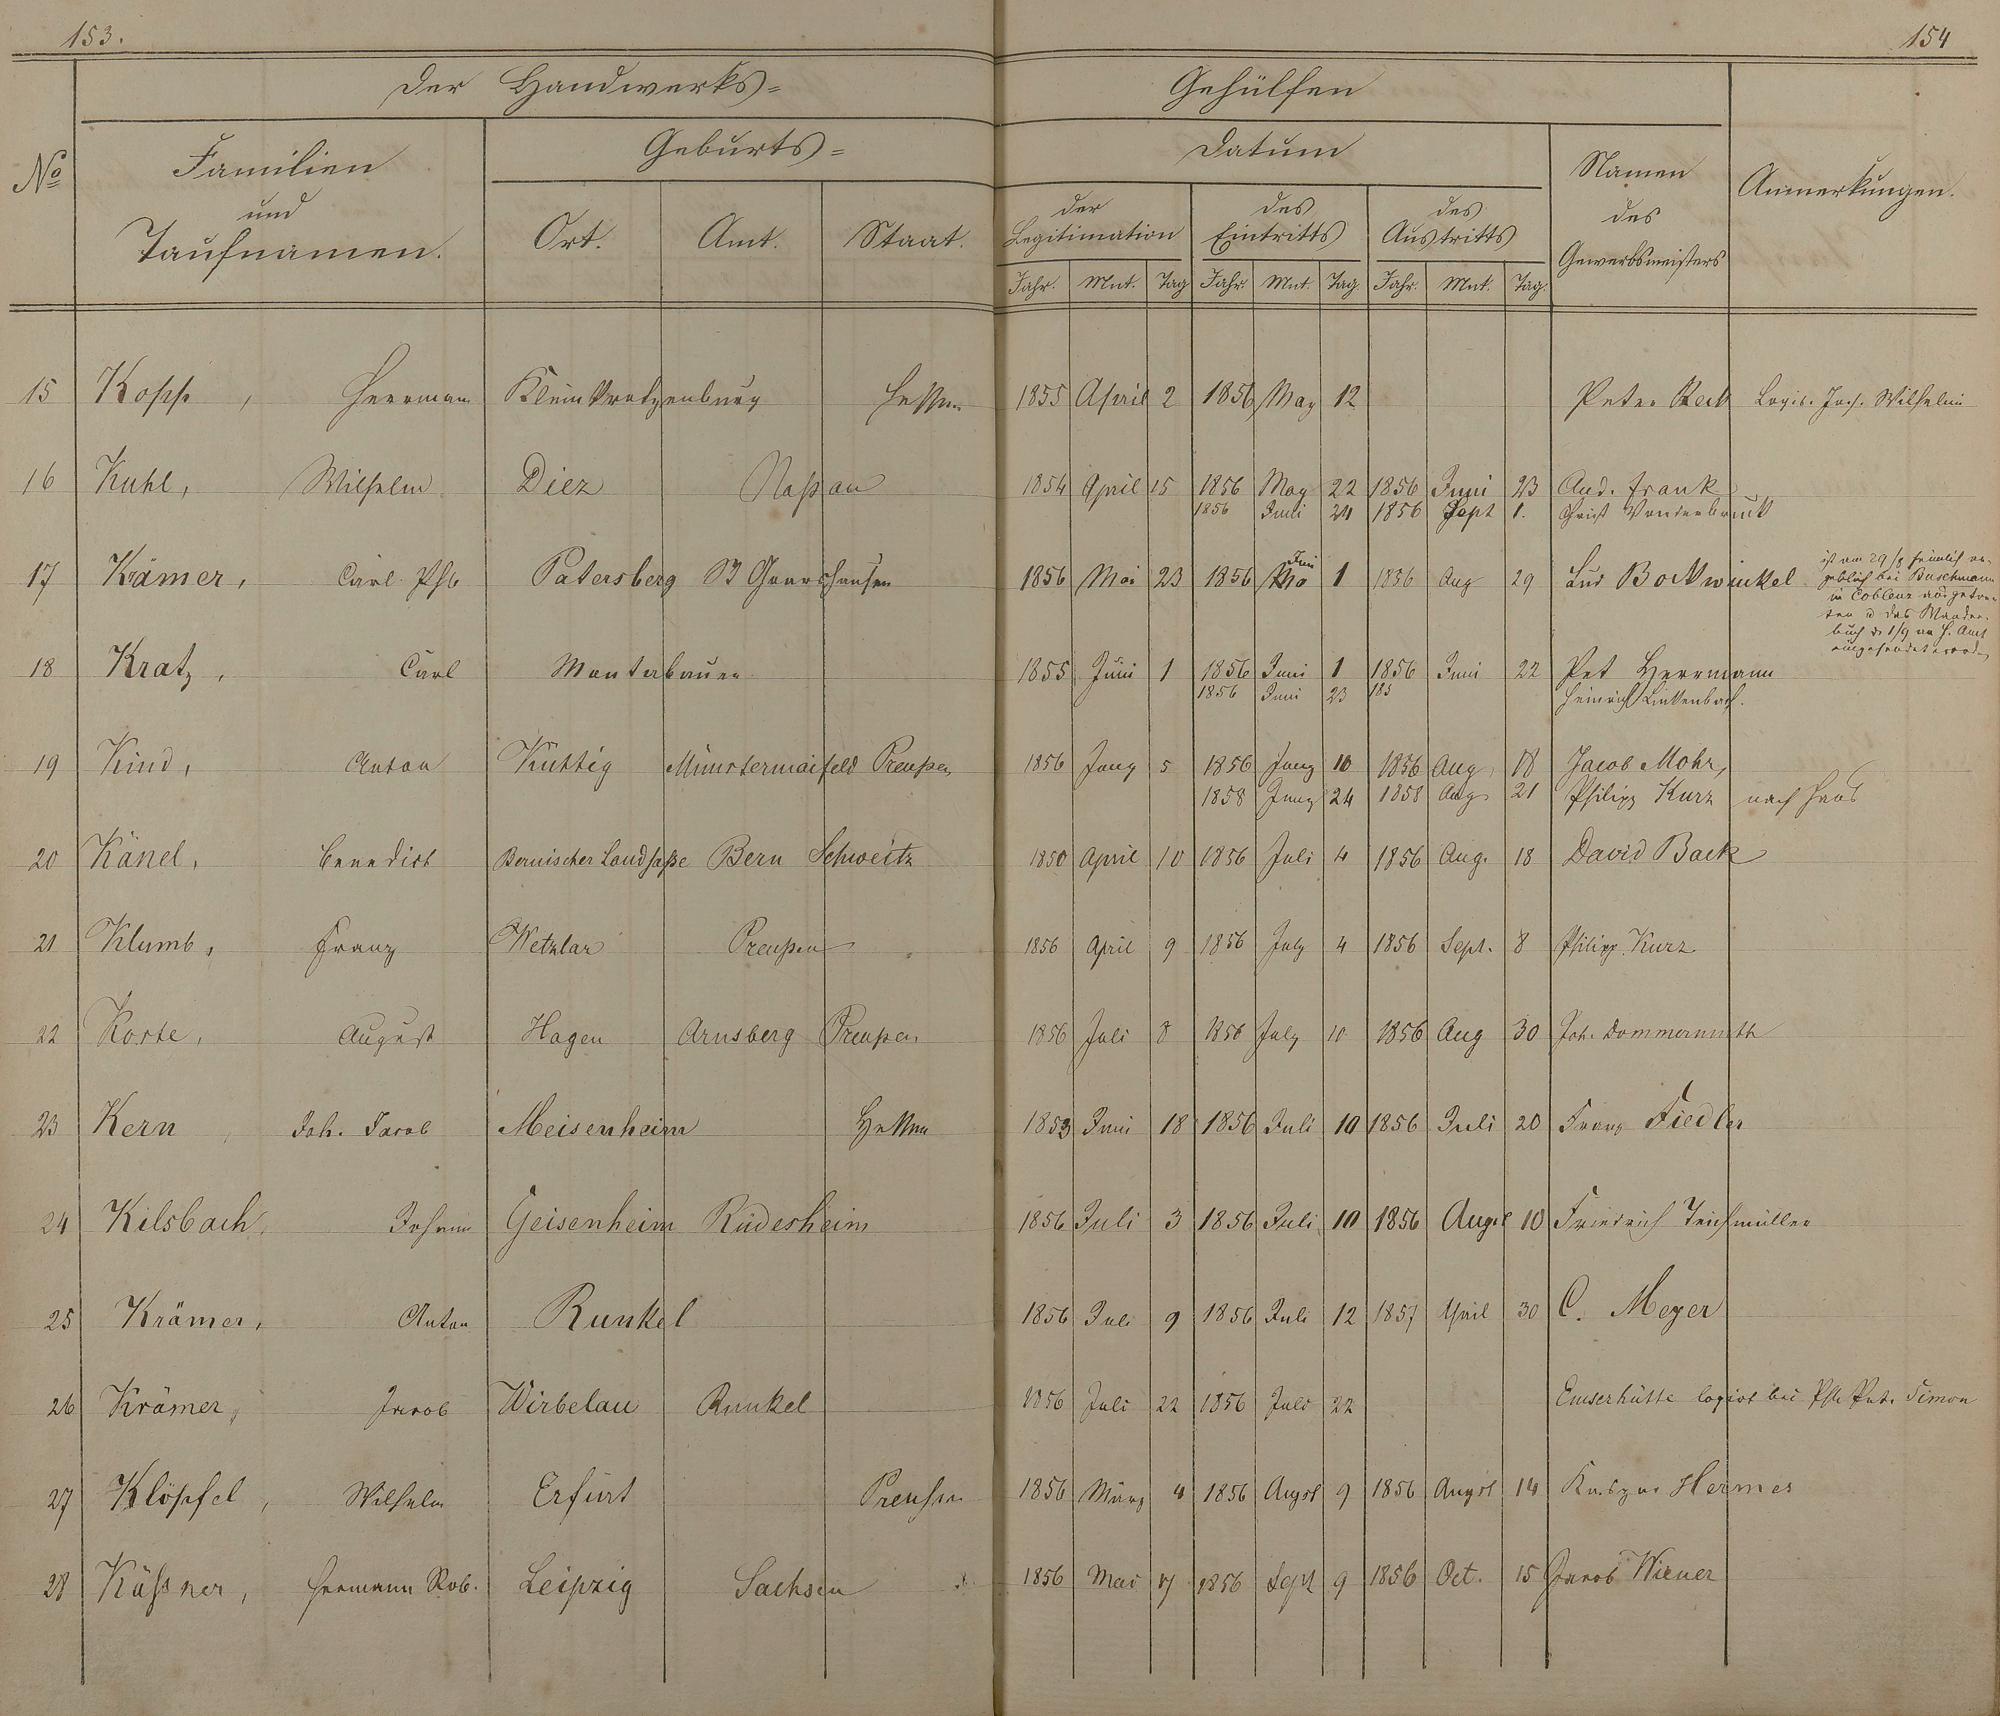 153.
154
Der Handwerks=
Gehülfen
No
Familien
und
Taufnamen.
Geburts=
Ort.
Amt.
Staat.
Datum
der
Legitimation
des
Eintritts
des
Austritts
Jahr. Mnt. Tag Jahr. Mnt. Tag. Jahr. Mnt. Tag.
Namen
des
Gewerbsmeisters
Anmerkungen.
15 Kopp, Herrmann Kleinkrotzenburg Hessen 1855 April 2 1856 May 12 Peter Reck Logis. Jac. Wilhelm
16 Kuhl, Wilhelm Diez Nassau 1854 April 15 1856 May 22 1856 Juni 23 And. Frank
1856 Juni 24 1856 Sept 1. Christ Vonderbruck
17 Krämer, Carl Phb Patersberg St Goarshausen 1856 Mai 23 1856 Juni 1 1856 Aug 29 Lud Bockwinkel
ist am 29/8 heimlich an-
geblich bei Buschmann
in Coblenz ausgetre-
ten u das Wander-
buch d. 1/9 an H. Amt
eingesendet worden
18 Kratz, Carl Montabauer 1855 Juni 1 1856 Juni 1 1856 Juni 22 Pet Herrmann
1856 Juni 23 185 Heinrich Linkenbach.
19 Kind, Anton Küttig Münstermaifeld Preußen 1856 Juny 5 1856 Juny 10 1856 Aug. 18 Jacob Mohr,
1858 Juny 24 1858 Aug. 21 Philipp Kurz nach Haus
20 Känel, Benedict Bernischer Landsaße Bern Schweitz 1850 April 10 1856 Juli 4 1856 Aug. 18 David Back
21 Klumb, Franz Wetzlar Preußen 1856 April 9 1856 July 4 1856 Sept. 8 Philipp Kurz
22 Korte, August Hagen Arnsberg Preußen 1856 Juli 8 1856 July 10 1856 Aug 30 Joh. Dommermuth
23 Kern, Joh. Jacob Meisenheim Hessen 1853 Juni 18 1856 Juli 10 1856 Juli 20 Franz Fiedler
24 Kilsbach, Johann Geisenheim Rüdesheim 1856 Juli 3 1856 Juli 10 1856 Augst 10 Friedrich Teichmüller
25 Krämer, Anton Runkel 1856 Juli 9 1856 Juli 12 1857 April 30 C. Meyer
26 Krämer, Jacob Wirbelau Runkel 1856 Juli 22 1856 Juli 22 Emserhütte logirt bei Ph. Pet. Simon
27 Klöpfel, Wilhelm Erfurt Preußen 1856 März 4 1856 Augst 9 1856 Augst 14 Kaspar Hermes
28 Käßner, Hermann Rob. Leipzig Sachsen 1856 Mai 17 1856 Sept 9 1856 Oct. 15 Jacob Wiener